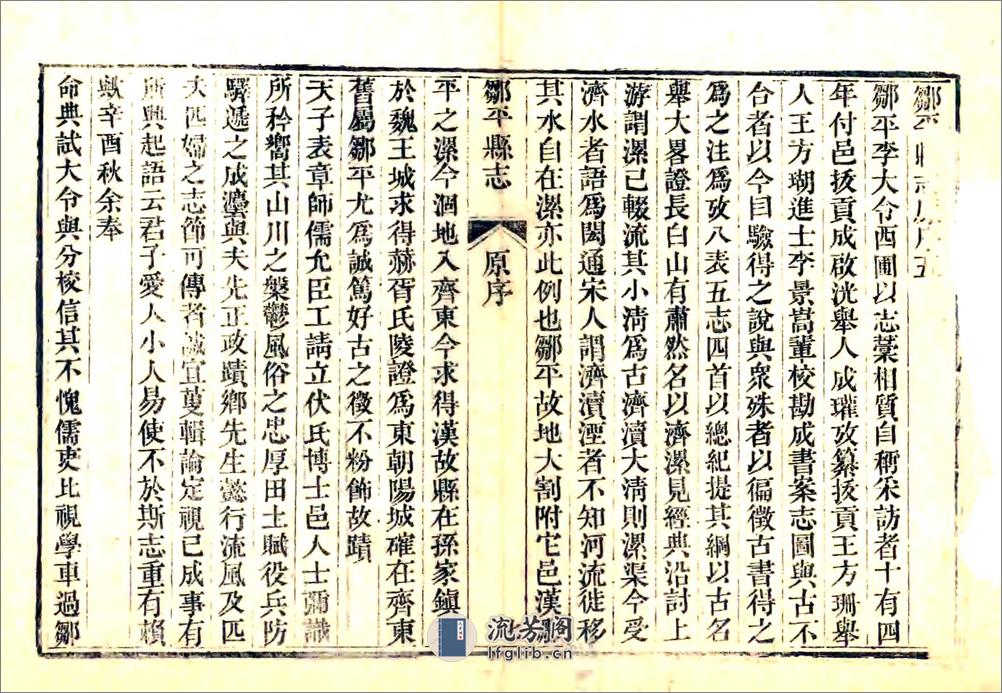 鄒平縣志原序五
鄒平李大令西圃以志藁相質自稱采訪者十有四
年付邑拔貢成啟洸舉人成瓘攷纂拔貢王方珊舉
人王方瑚進士李景嵩輩校勘成書案志圖與古不
合者以今目驗得之說與衆殊者以徧徵古書得之
為之注為攷八表五志四首以總紀提其綱以古名
舉大畧證長白山有肅然名以濟漯見經典沿討上
游謂漯已輟流其小清為古濟瀆大清則漯渠今受
濟水者語為閎通宋人謂濟瀆湮者不知河流徙移
其水自在漯亦此例也鄒平故地大割附它邑漢鄒
鄒平縣志
原序
平之漯今涸地入齊東今求得漢故縣在孫家鎮
於魏王城求得赫胥氏陵證為東朝陽城確在齊東
舊屬鄒平尤為誠篤好古之徵不粉飾故蹟
天子表章師儒允臣工請立伏氏博士邑人士彌識
所矜嚮其山川之槃鬱風俗之忠厚田土賦役兵防
驛遞之成灋與夫先正政蹟鄉先生懿行流風及匹
夫匹婦之志節可傳者誠宜蒐輯論定視已成事有
所興起語云君子愛人小人易使不於斯志重有賴
歟辛酉秋余奉
命典試大令與分校信其不愧儒吏比視學車過鄒
流芳阁
lfglib.cn